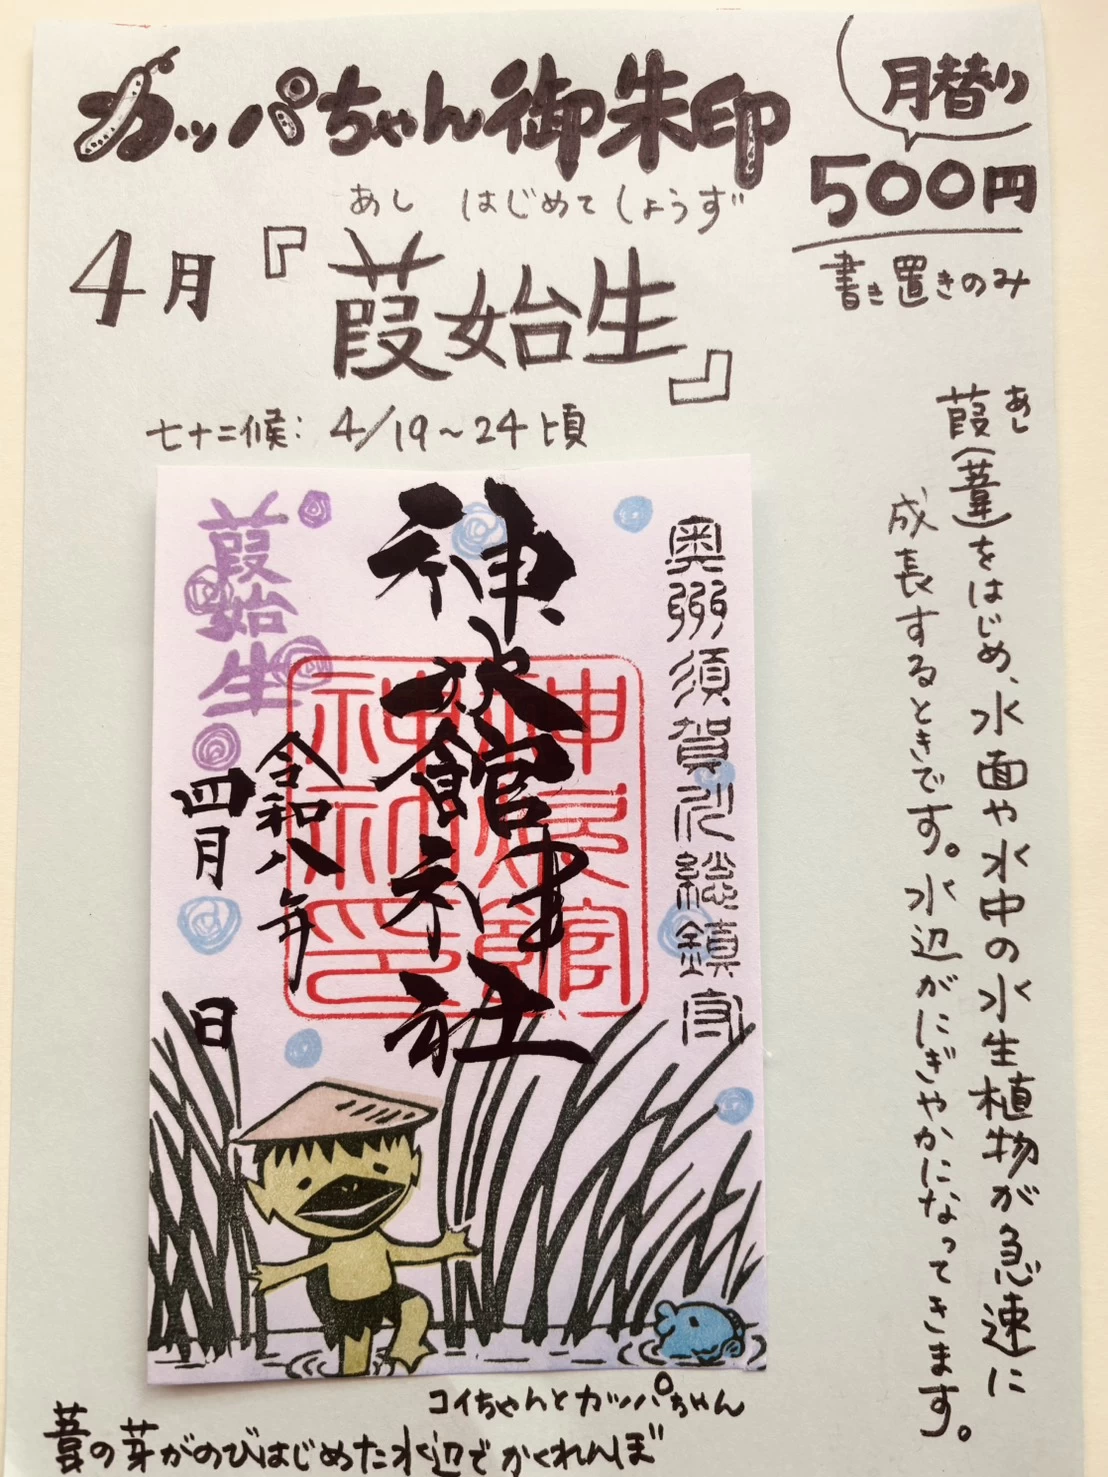 カッパちゃん御朱印
月替り
500円
書き置きのみ
あし はじめてしょうず
4月『葭始生』
七十二候：4/19～24頃
あし
葭(葦)をはじめ、水面や水中の水生植物が急速に
成長するときです。水辺がにぎやかになってきます。
奥州須賀川総鎮守
神炊館神社
神炊館
神社印
葭始生
令和八年
四月 日
コイちゃんとカッパちゃん
葦の芽がのびはじめた水辺でかくれんぼ